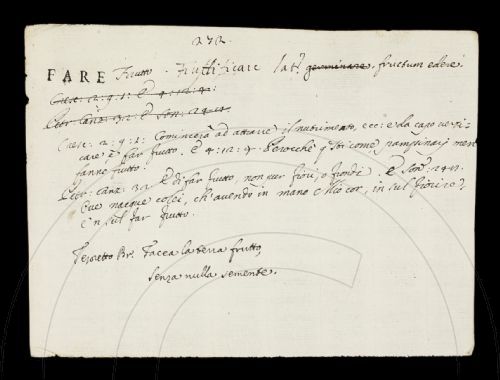 272.
FARE Frutto. Fruttificare lat. germinare, fructum edere.
Cresc: 2: 9: 1: E 4: 12: 9:
Petr: Canz: 32. E Son: 
Cresc: 2: 9: 1: Comincerà ad attrarre il nutrimento, ecc: e da capo verzi
care, e far frutto. E 4: 12: 9. Perocchè questi come pampinai
fanno frutto.
Petr: Canz: 32 E di far frutto, non pur fiori, o frondi. E Son:
Qui nacque colei, ch'avendo in mano Mio cor, in sul fiorire,
e 'n sul far frutto.
Tesoretto Br. Facea la terra frutto,
Senza nulla semente.